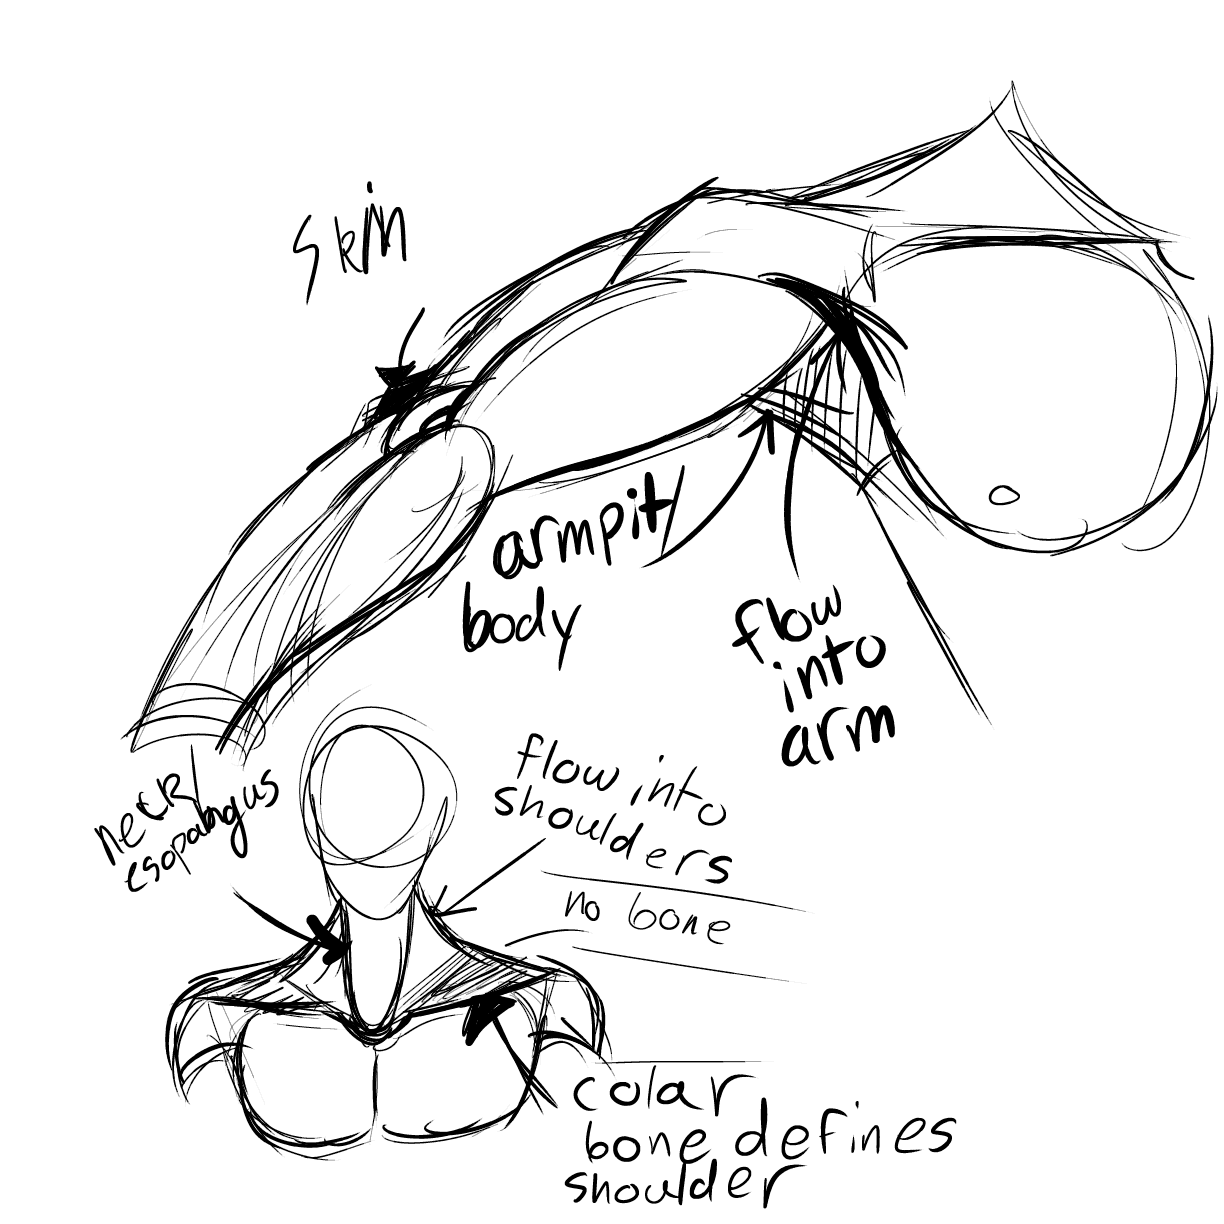 skin
armpit/
body
flow
into
arm
neck/
esopahgus
flow into
shoulders
no bone
colar
bone defines
shoulder